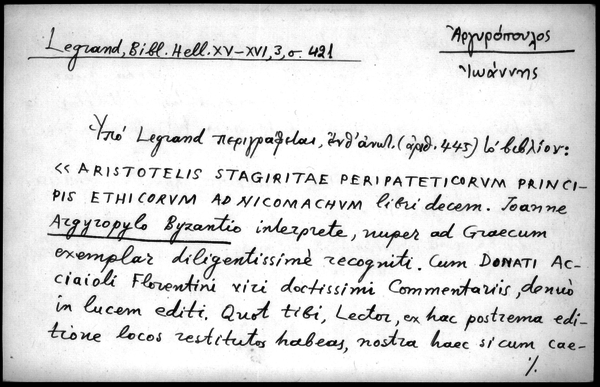 Legrand, Bibl. Hell. XV–XVI, 3, σ. 421
Ἀργυρόπουλος
Ἰωάννης
Ὑπό Legrand περιγράφεται, ἐνθ' ἀνωτ. (ἀριθ. 445) τό βιβλίον:
<< ARISTOTELIS STAGIRITAE PERIPATETICORVM PRINCI-
PIS ETHICORVM AD NICOMACHVM libri decem. Joanne
Argyropylo Byzantio interprete, nuper ad Graecum
exemplar diligentissimè recogniti. Cum DONATI AC-
ciaioli Florentini viri doctissimi Commentariis, denuò
in lucem editi. Quot tibi, Lector, ex hac postrema edi-
tione locos restitutos habeas, nostra haec si cum cae-
./.